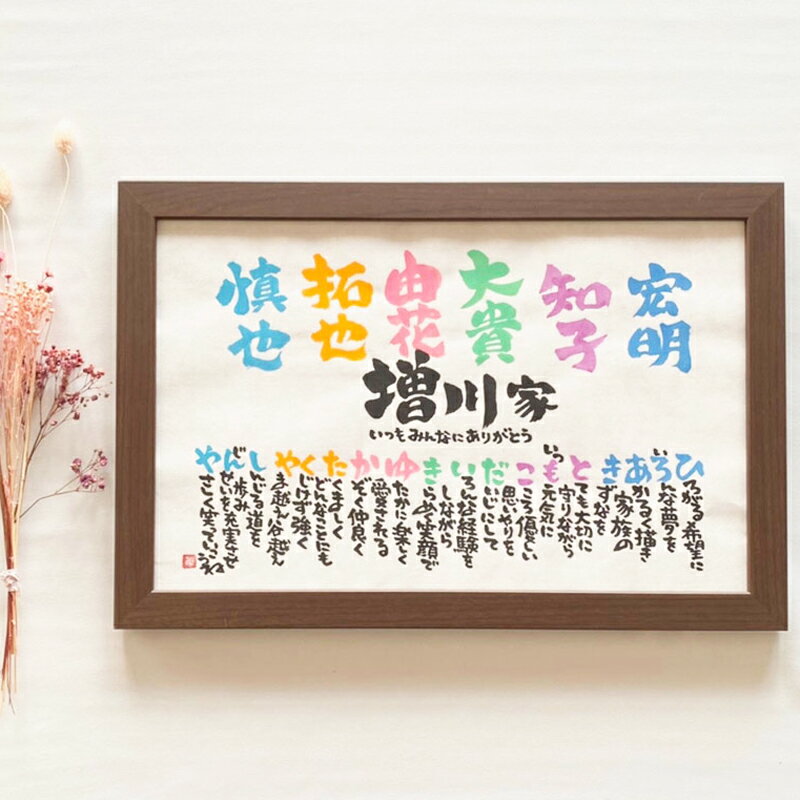 宏明
知子
大貴
由花
拓也
慎也
増川家
いつもみんなにありがとう
ひろがる希望に
いろんな夢を
あかるく描き
家族の
きずなを
とても大切に
守りながら
いつも元気に
こころ優しい
思いやりを
だいじにして
いろんな経験を
しながら
きらめく笑顔で
ゆたかに楽しく
愛される
かぞく仲良く
たくましく
どんなことにも
くじけず強く
やま越え谷越え
しんじる道を
歩み
じんせいを充実させ
やさしく笑っていこうね